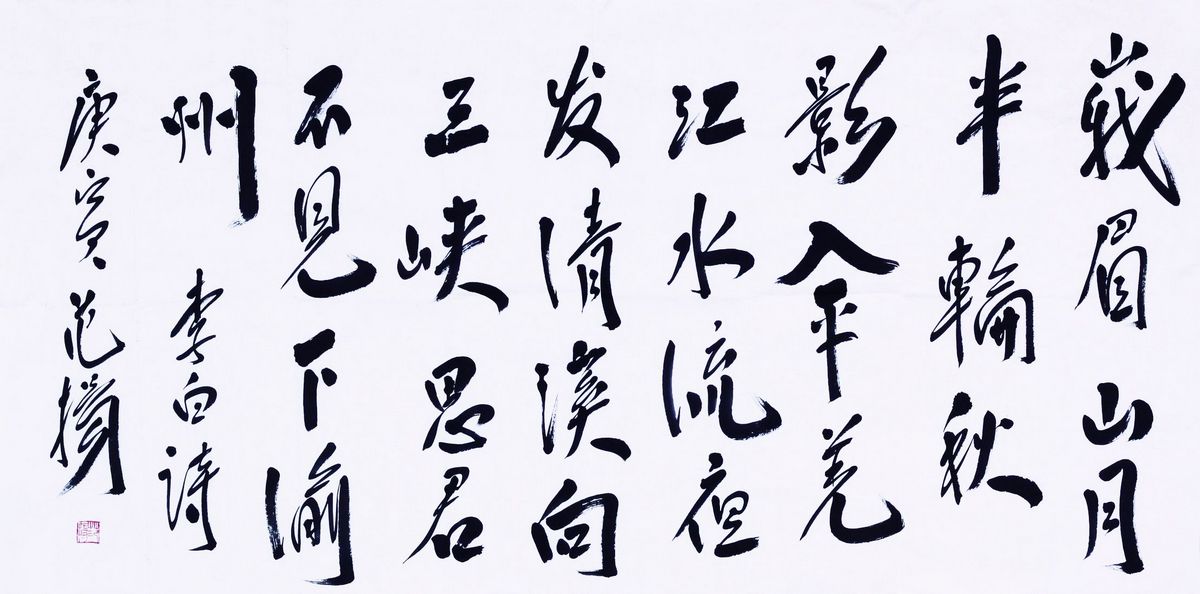 峩眉山月
半輪秋
影入平羌
江水流夜
发清溪向
三峡思君
不見下渝
州 李白詩
庚寅 范